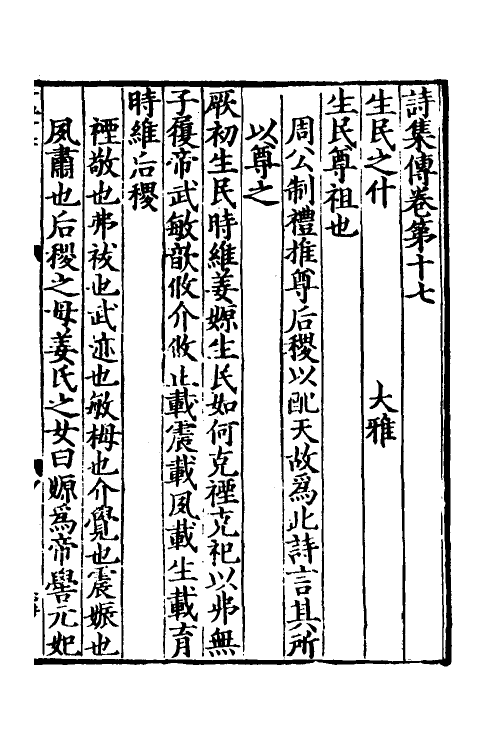 詩集傳卷第十七
生民之什　大雅
生民尊祖也
周公制禮推尊后稷以配天故爲此詩言其所
以尊之
厥初生民時維姜嫄生民如何克禋克祀以弗無
子履帝武敏歆攸介攸止載震載夙載生載育
時維后稷
禋敬也弗祓也武迹也敏栂也介覺也震娠也
夙肅也后稷之母姜氏之女曰嫄爲帝嚳元妃